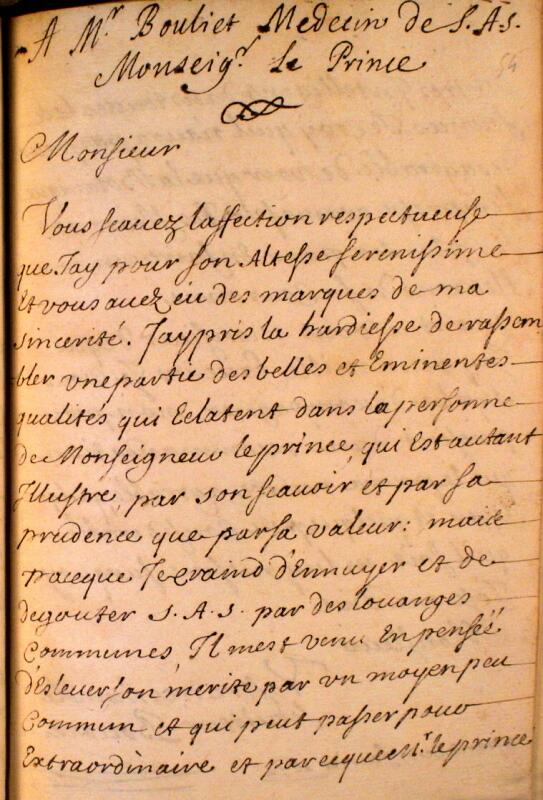 A Mr Bouliet Medecin de S. A. S.
Monseigr le Prince
54
Monsieur
Vous scauez laffection respectueuse
que Jay pour son Altesse serenissime
Et vous auez eu des marques de ma
sincerité. Jay pris la hardiesse de rassem
bler vne partie des belles et Eminentes
qualités qui Eclatent dans la personne
de Monseigneur le prince, qui Est autant
Illustre, par son scauoir, et par sa
prudence que par sa valeur: mais
parceque Je craind d'Ennuyer et de
degouter S. A. S. par des louanges
Communes Il mest venu En pensée
d'Esleuer son mérite par vn moyen peu
Commun et qui peut passer pour
Extraordinaire et parceque Mr. le prince